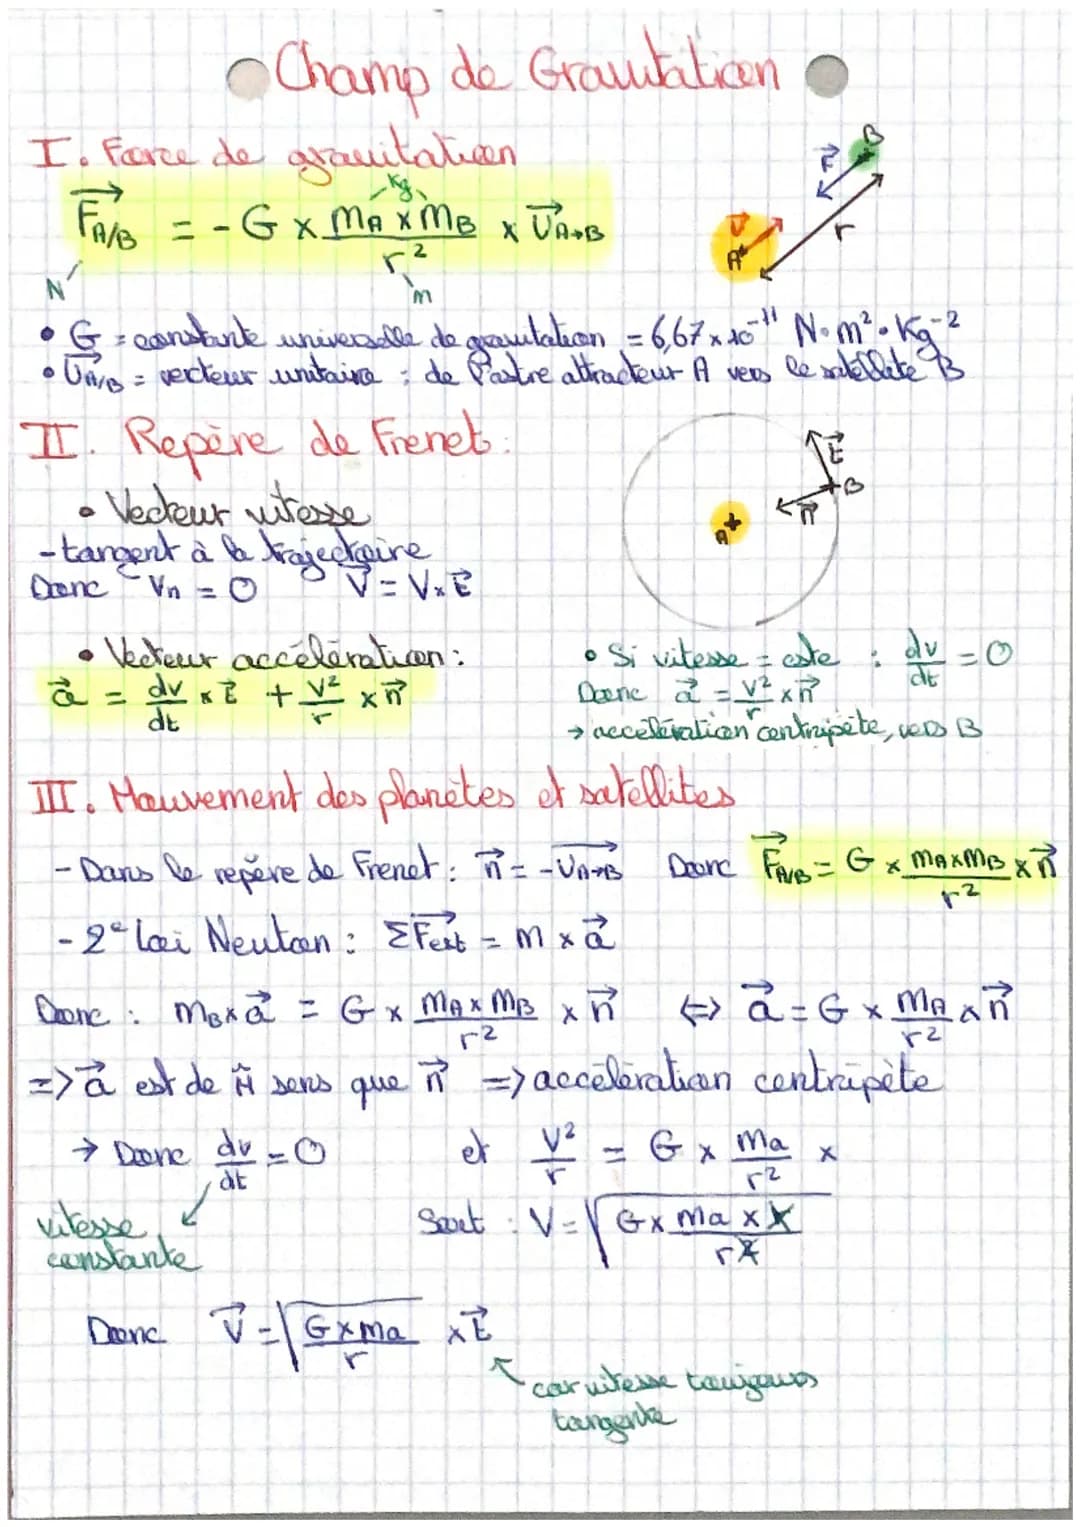 Champ de Gravitation
I. Force de gravitation
B
F⃗
r
U⃗
A
kg
F⃗A/B = - G × mA × mB / r² × U⃗A→B
N
m
• G = constante universelle de gravitation = 6,67 × 10⁻¹¹ N•m²•Kg⁻²
• U⃗A/B = vecteur unitaire : de l'astre attracteur A vers le satellite B
II. Repère de Frenet :
t⃗
B
n⃗
A
• Vecteur vitesse
- tangent à la trajectoire
Donc Vn = 0 V⃗ = V × t⃗
• Vecteur accélération :
a⃗ = dv/dt × t⃗ + v²/r × n⃗
• Si vitesse = cste : dv/dt = 0
Donc a⃗ = v²/r × n⃗
→ accélération centripète, vers B
III. Mouvement des planètes et satellites
- Dans le repère de Frenet : n⃗ = -U⃗A→B Donc F⃗A/B = G × mA×mB / r² × n⃗
- 2ᵉ Loi Newton : ΣF⃗ext = m × a⃗
Donc : mB × a⃗ = G × mA × mB / r² × n⃗ ⇔ a⃗ = G × mA / r² × n⃗
=> a⃗ est de m̂ sens que n⃗ => accélération centripète
→ Donc dv/dt = 0 et V²/r = G × ma / r² ×
vitesse constante
Soit : V = √(G × ma × r / r²)
Donc V⃗ = √(G × ma / r) × t⃗
car vitesse toujours
tangente